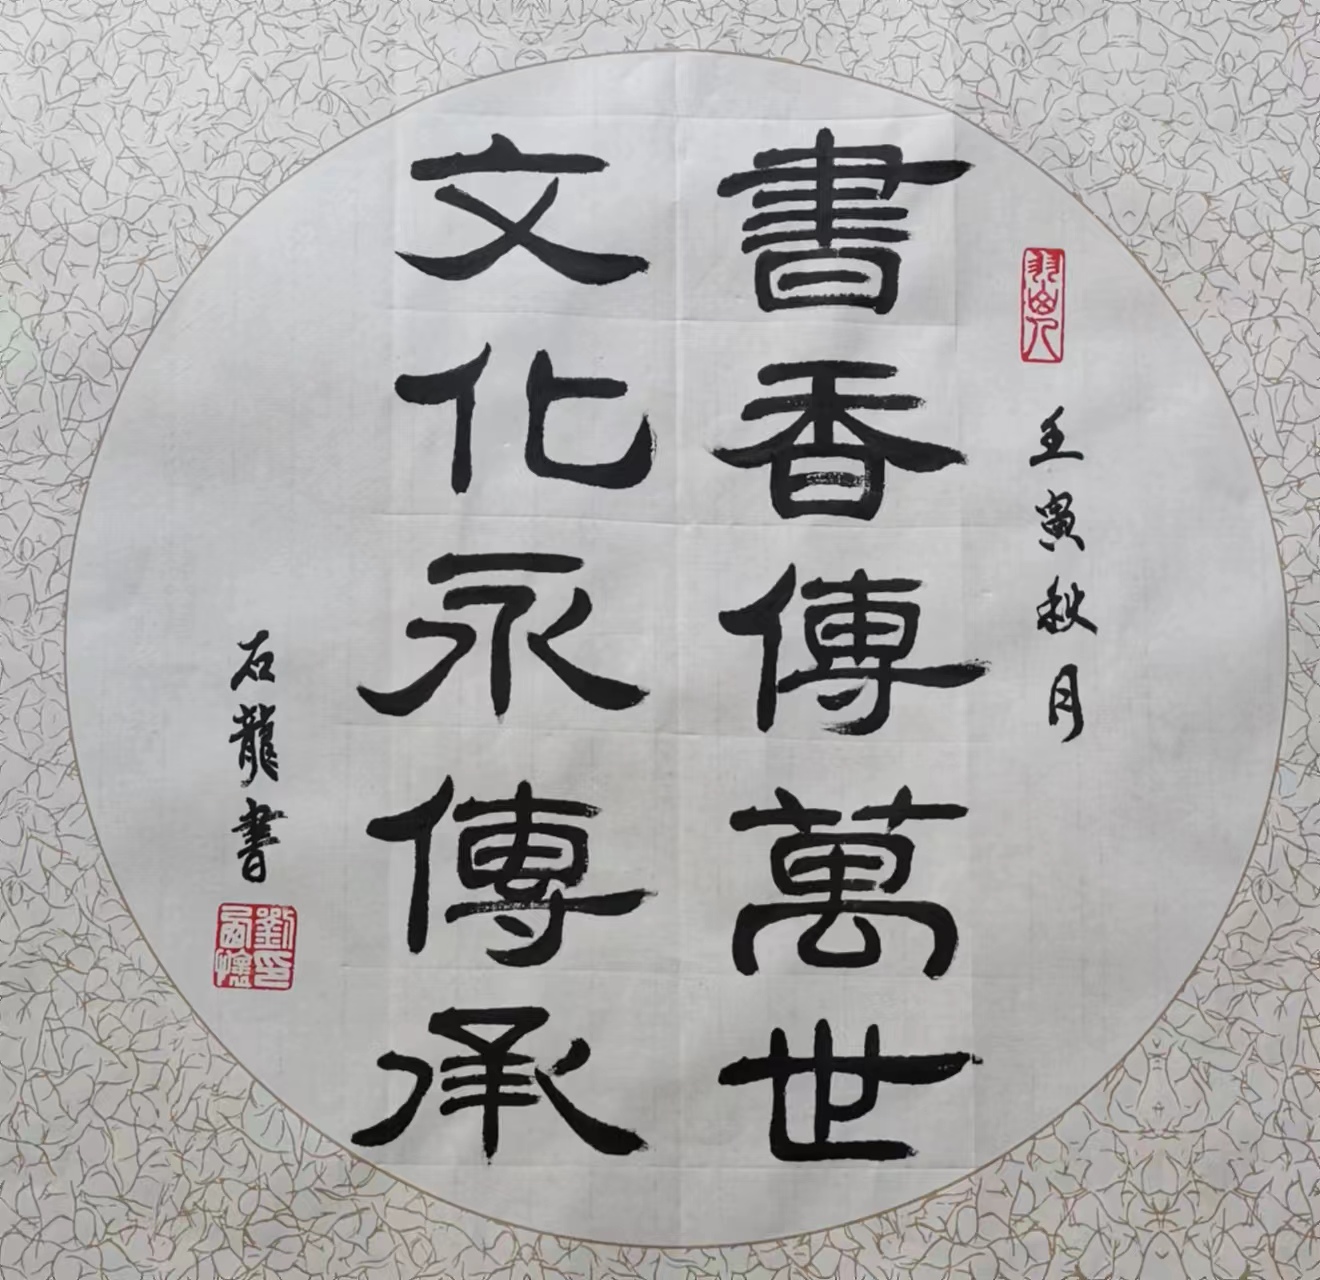 壬寅秋月
書香傳萬世
文化永傳承
石龍書